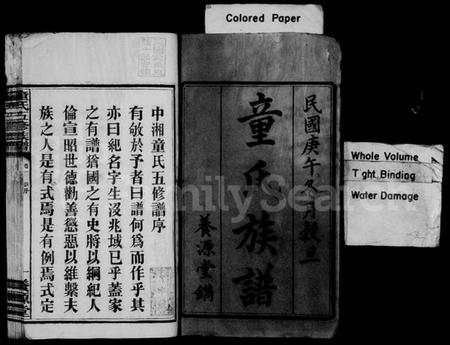 Colored Paper
Whole Volume
Tight Binding
Water Damage
民國庚午冬月穀旦
童氏族譜
養源堂鐫
中湘童氏五修譜序
有敂於予者曰譜何爲而作乎其
亦曰紀名字生沒兆域已乎蓋家
之有譜猶國之有史將以綱紀人
倫宣昭世德勸善懲惡以維繫夫
族之人是有式焉是有例焉式定
FamilySearch